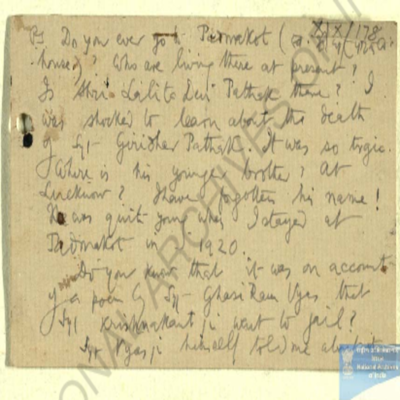 PS Do you ever go to Padmakot (
house)? Who are living there at present?
Is Shri Lalita Devi Pathak there? I
was shocked to learn about the death
of Syt Giridhar Pathak. It was so tragic.
Where is his younger brother? At
Lucknow? I have forgotten his name!
He was quite young when I stayed at
Padmakot in 1920.
Do you know that it was on account
of a poem by Syt Ghasi Ram Vyas that
Syt Krishnakant ji went to jail?
Syt Vyas ji himself told me about it